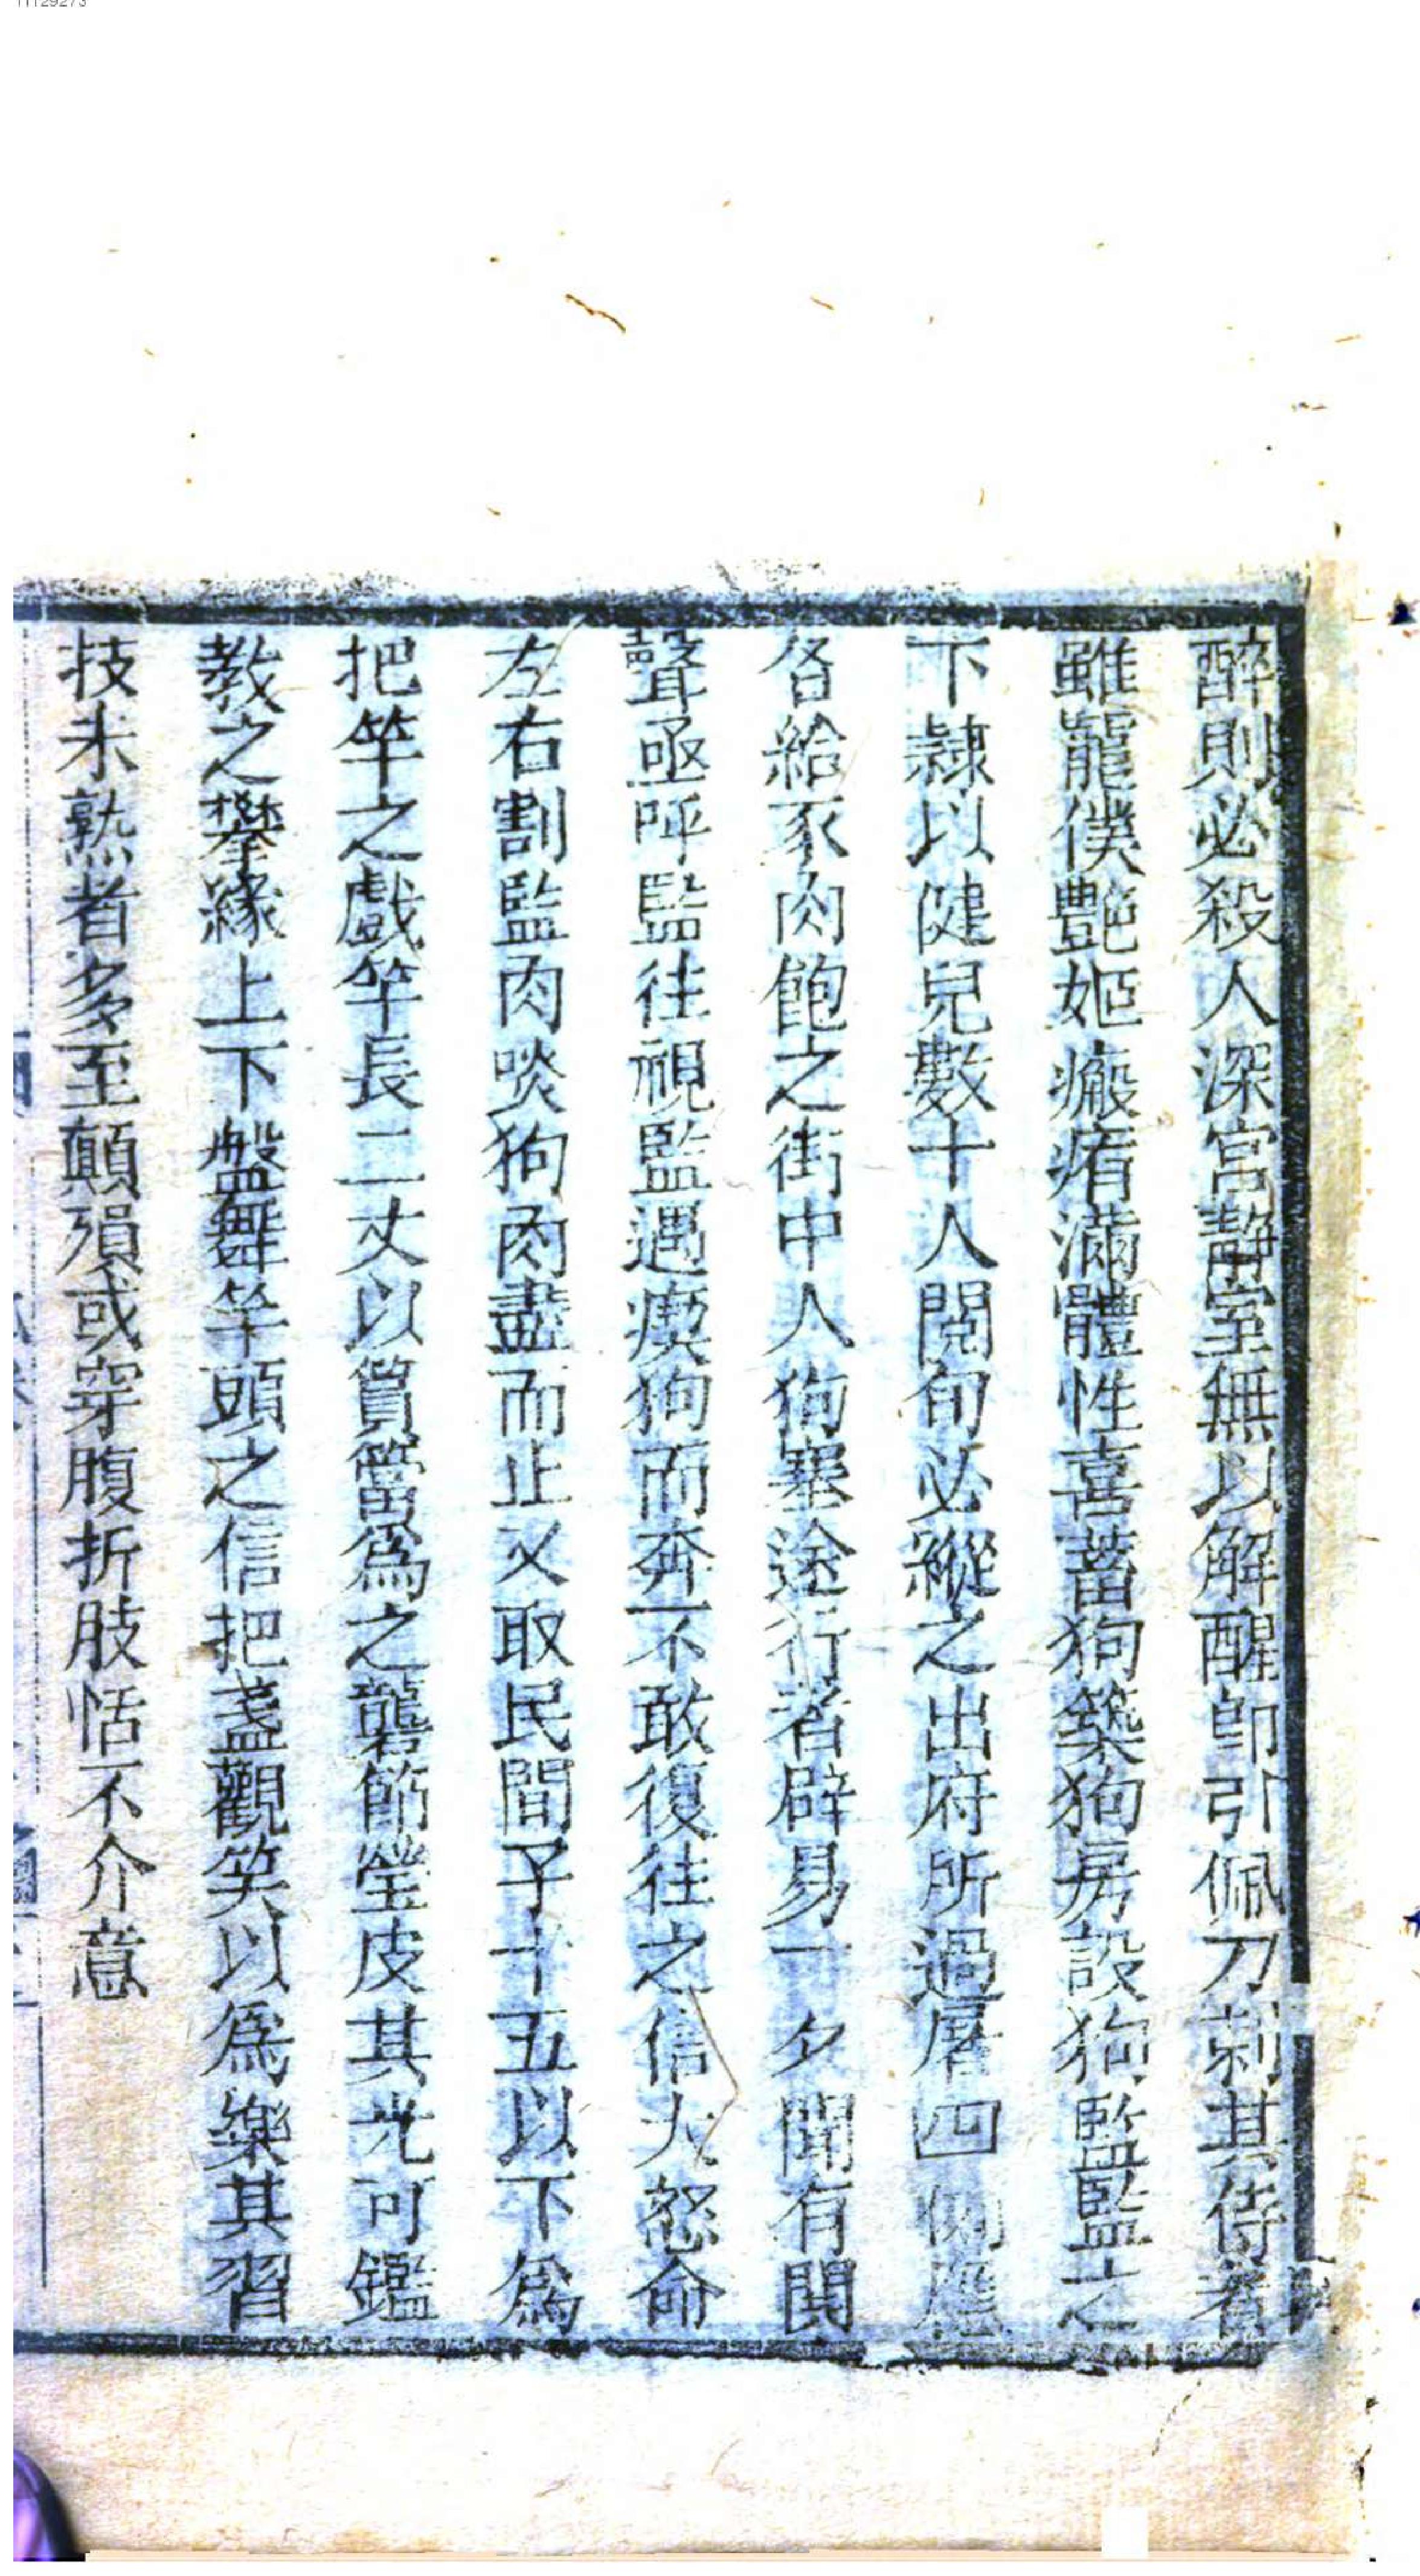 醉則必殺人深宮靜室無以解醒卽引佩刀刺其侍者
雖寵僕艷姬瘢痏滿體性喜蓄狗築狗房設狗監監之
下隷以健兒數十人閱旬必縱之出府所過屠四側應
各給豕肉飽之街中人狗塞途行者辟易一夕聞有鬨
聲亟呼監往視監遇瘈狗而奔不敢復往之信大怒命
左右割監肉啖狗肉盡而止又取民間子十五以下爲
把竿之戲竿長二丈以篔簹爲之礱節瑩皮其光可鑑
教之攀緣上下盤舞竿頭之信把盞觀笑以爲樂其習
技未熟者多至顛殞或穿腹折肢恬不介意